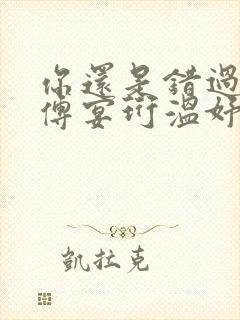 你還是錯過
傅宴珩溫妤
凱拉克